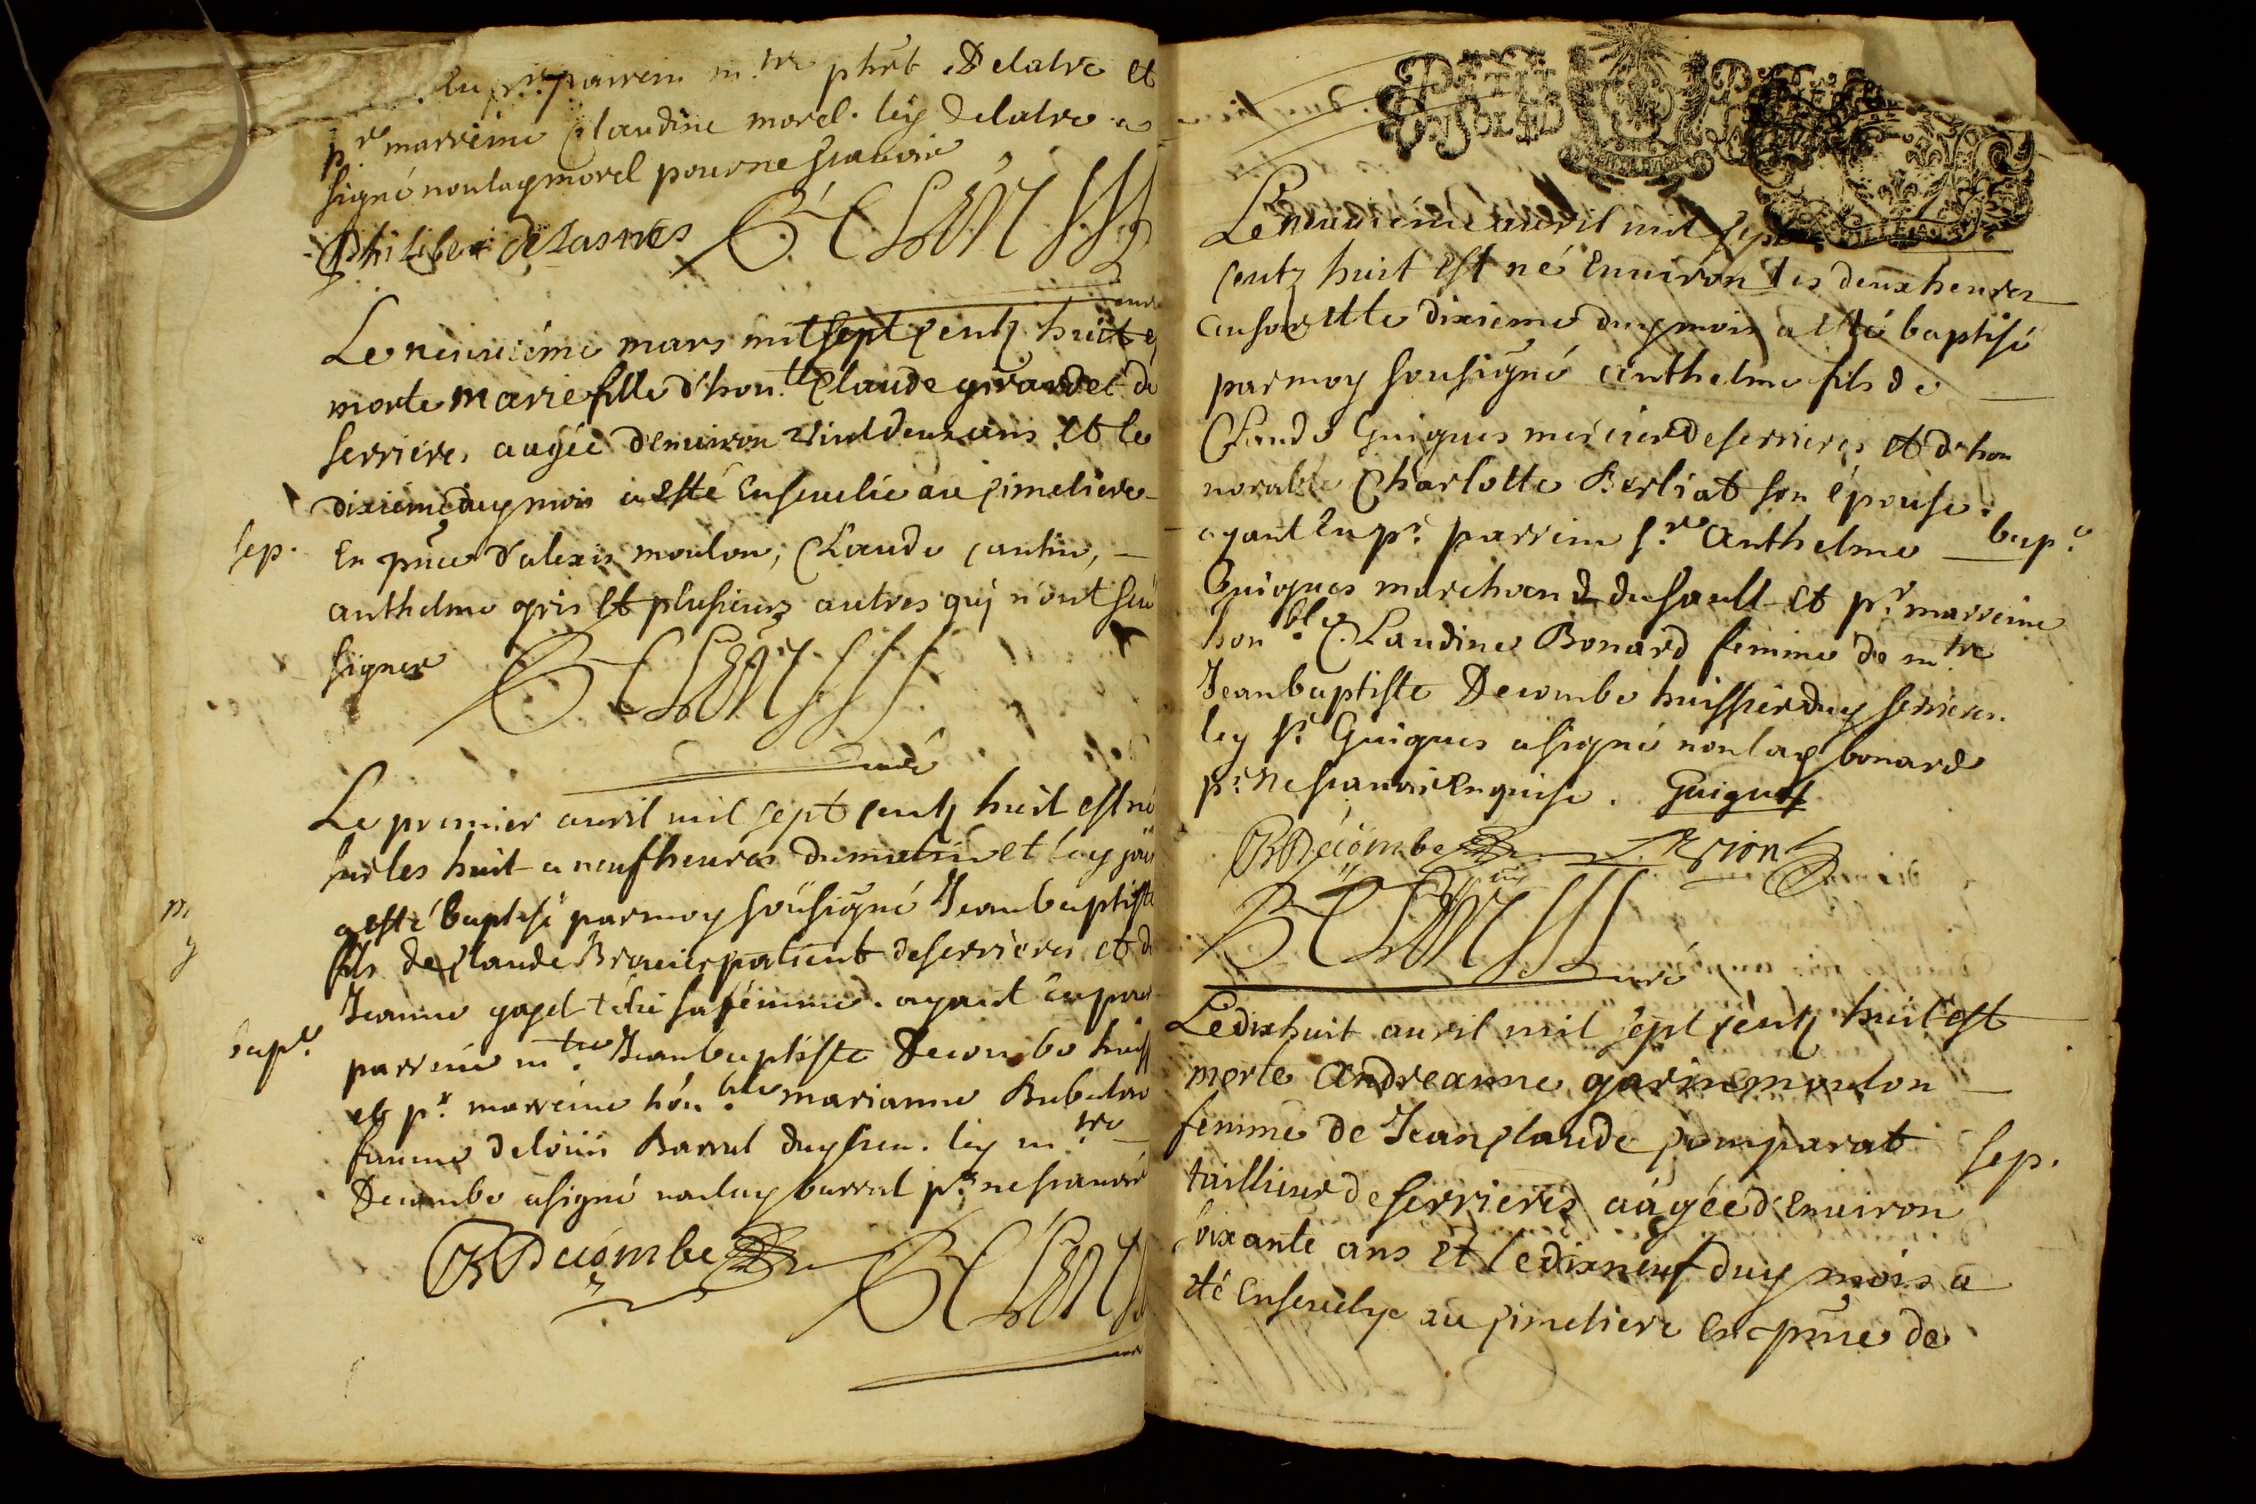 Eu pr. parrein m.tre phbt Delatre et
pr marreine Claudine morel. ley Delatre a
signé non lay morel pour ne scauoir
Philibert
Le neuuiéme mars mil sept centz huit e
morte marie fille d'hon.ble Claude girardet de
serrieres aagée d'enuiron vint deux ans et le
dixième duy mois a esté Enseuelie au cimetiere
sep.
En pnce d'alexis moulon, Claude cantin,
anthelme gris et plusieurs autres quj n'ont sceu
signer
curé
Le premier auril mil sept centz huit est né
sur les huit a neuf heures du matin et ley jour
a esté baptisé par moy soûsigné Jean baptiste
fils de Claude Brauier patient de serrieres et de
Jeanne gagel têtu sa femme. ayant Eu pour
bap.e
parrein m.tre Jean baptiste Decombe huiss
et pr. marreine hon.ble marianne
femme de loüis Barral duy lieu. ley m.tre
Decombe a signé non lay barral pr. ne scauoir
JB Decombe
curé
PETIT PAP
Le neuuiéme auril mil sept
centz huit est né Enuiron les deux heures
au soir et le dixieme duy mois a esté baptisé
par moy sousigné anthelme fils de
Claude Guigues mercier de serrieres et d'hon
norable Charlotte Berliat son épouse.
ayant Eu pr. parrein s.r Anthelme
bap.e
Guigues marchand du sault et pr. marreine
hon.ble Claudine Bonard femme de m.tre
Jean baptiste Decombe huissier duy serrieres.
ley sr. Guigues a signé non lay bonard
pr. ne scauoir Enquise. Guigues
JB Decombe
curé
Le dixhuit auril mil sept centz huit est
morte Andreanne garin moulon
femme de Jean Claude comparat
sep.
taillieur de serrieres aàgée d'Enuiron
soixante ans et le dixneuf duy mois a
été Enseuelye au cimetiere En pnce de